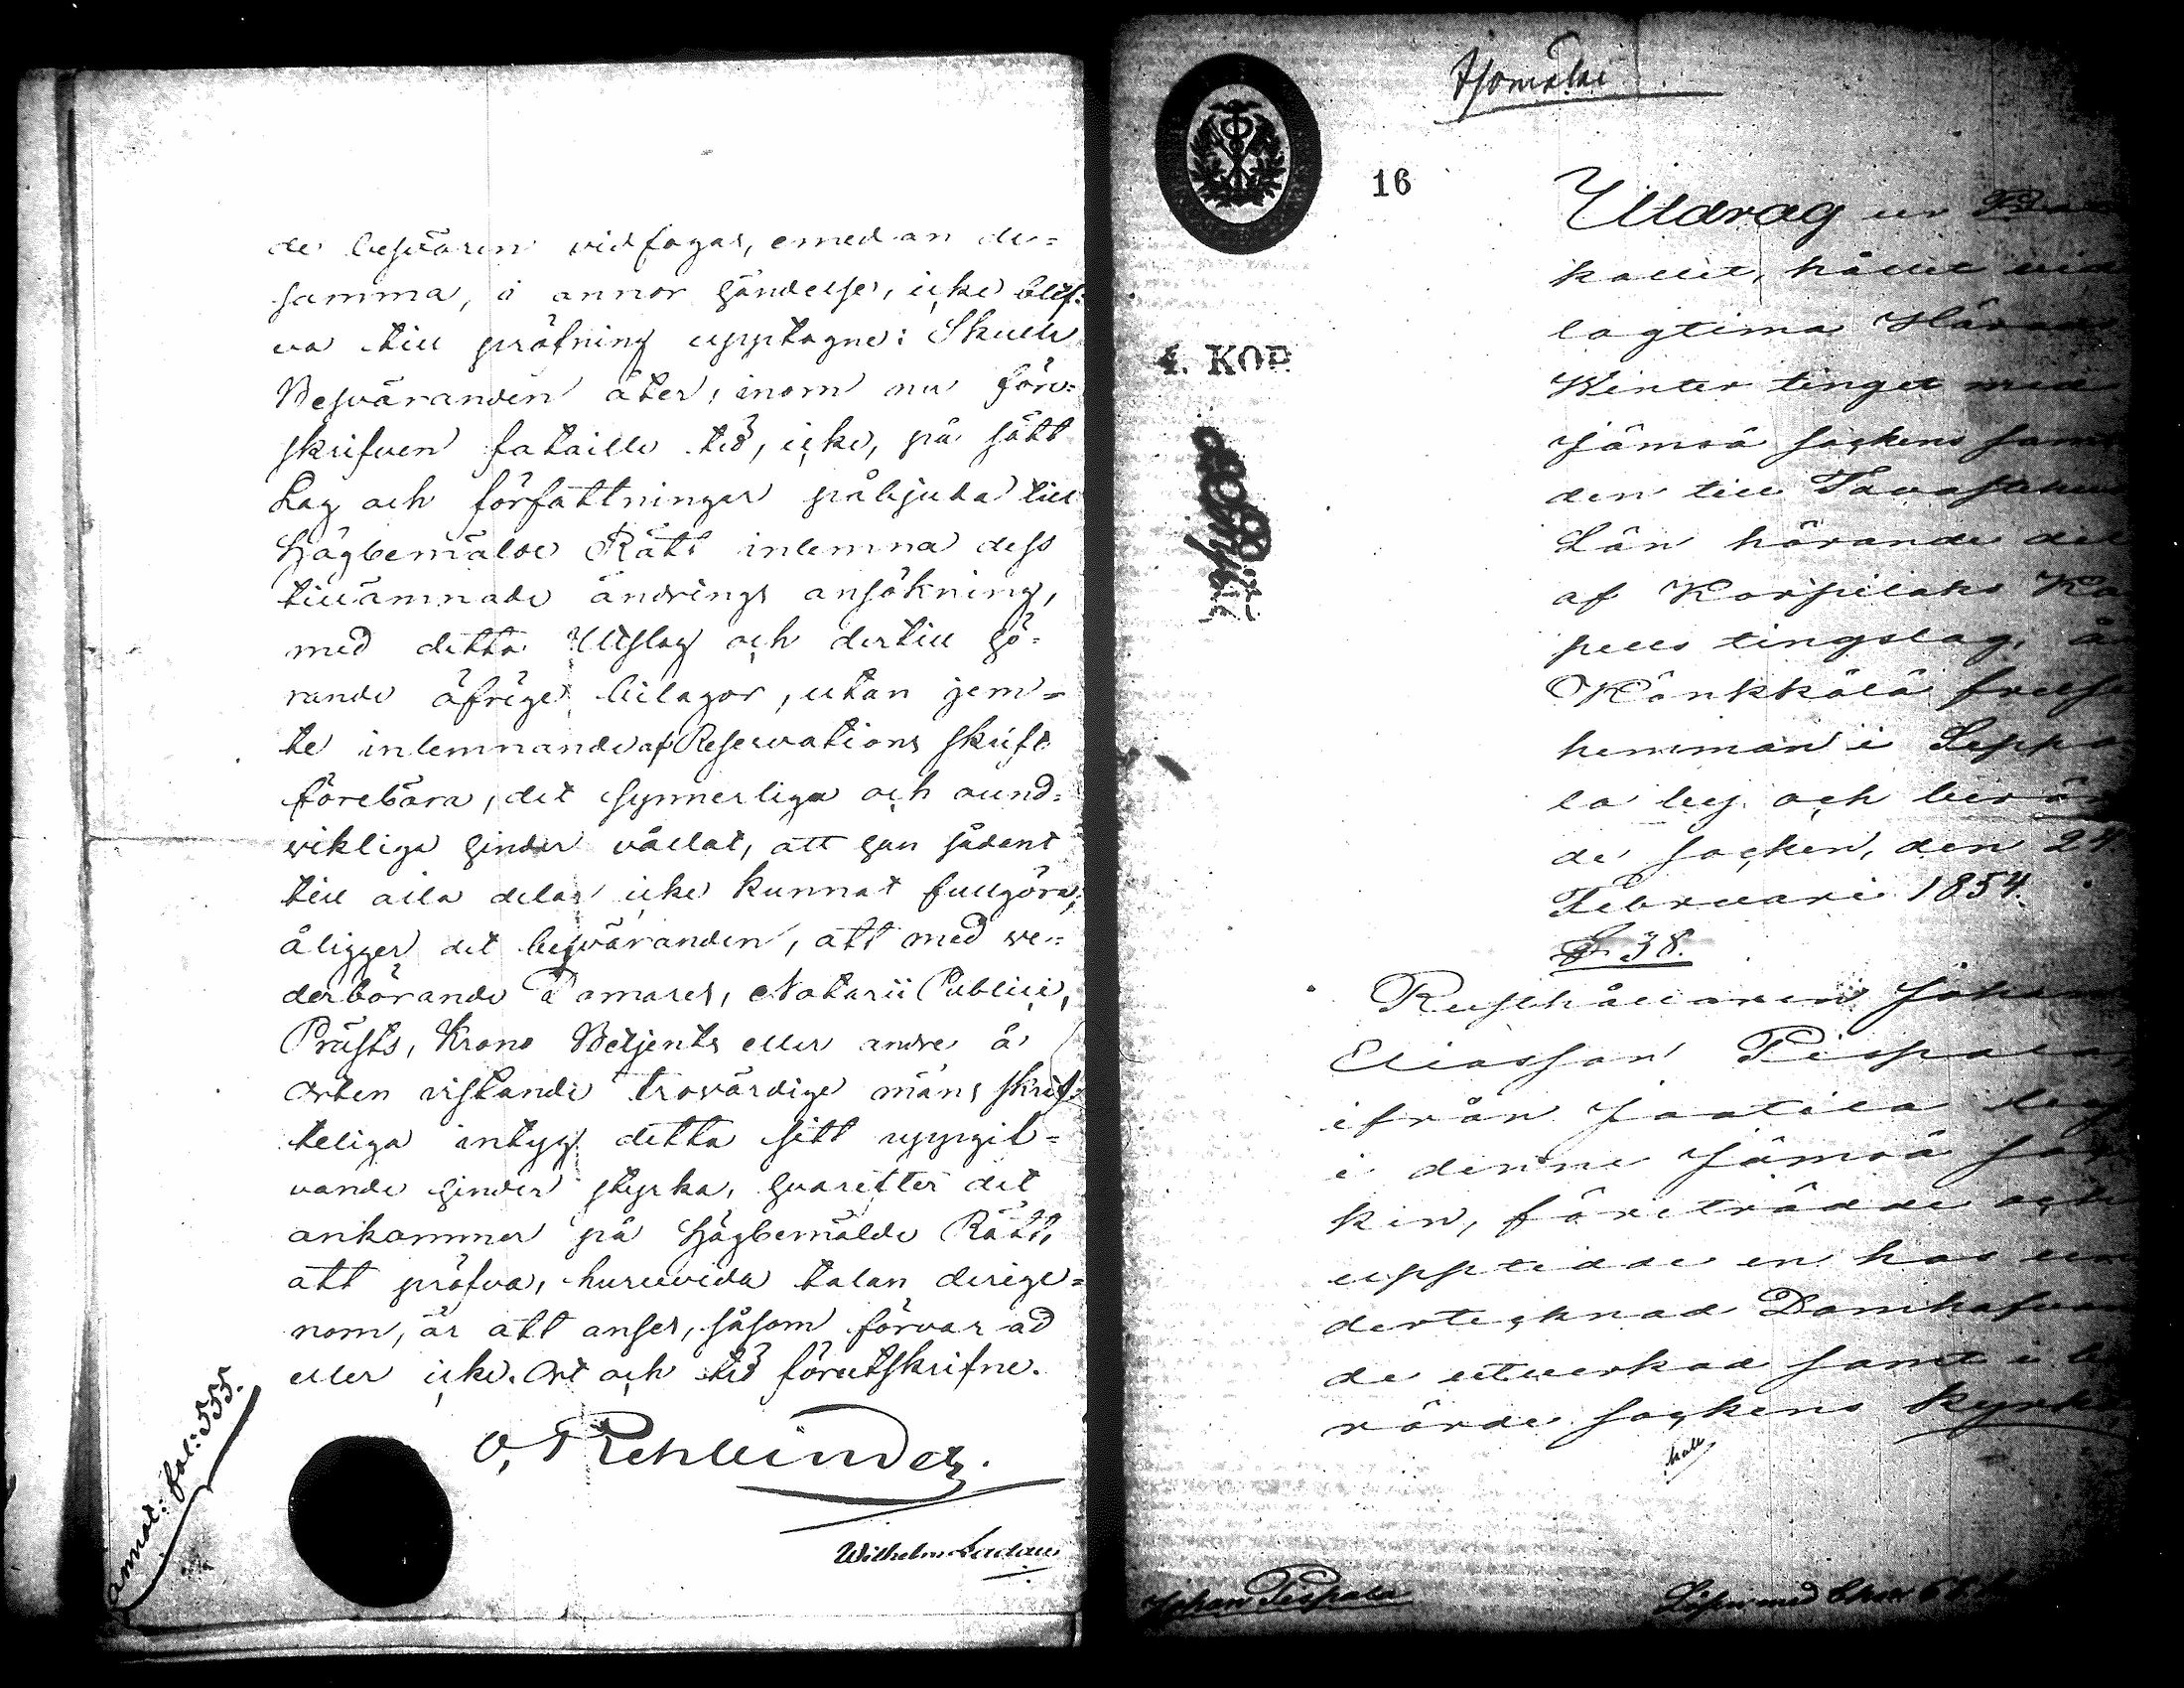 de besvären vidfogas, emedan de=
samma, i annor händelse, icke blif=
va till pröfning upptagne: Skulle
Besväranden åter, inom nu före=
skrifven fataille tid, icke, på sätt
Lag och författningar påbjuda till
Högbemälde Rätt inlemna dess
tillämnade ändrings ansökning,
med detta Utslag och dertill hö=
rande öfrige bilagor, utan jem=
te inlemnande af Reservations skrift
förebära, det synnerliga och ound=
vikliga hinder vållat, att han sådant
till alla delar icke kunnat fullgöra,
åligger det besväranden, att med ve=
derbörande Domares, Notarii Publici,
Prästs, Krono Betjents eller andre å
orten vistande trovärdige mäns skrif=
teliga intyg detta sitt uppgif=
vande hinder styrka, hvarefter det
ankommer på Högbemälde Rätt,
att pröfva, huruvida talan derige=
nom, är att anses, såsom förvarad
eller icke. Ort och tid förutskrifne.
O. Rehbinder.
Wilhelm
fol: 555.
16
4. KOP.
Utdrag ur
kollet, hållet vid
lagtima
Winter tinget med
Jämsä sockens samt
den till Tavastehus
Län hörande del
af Korpilaks Ka
pells tingslag, å
frälse
hemman i Seppo
la by och berör
de socken, den 24
Februari 1854.
§. 38.
Rusthållaren Johan
Eliasson Pispala,
ifrån Jaatila by
i denne Jämsä soc
ken, företrädde och
upptedde en hos un
dertecknad Domhafvan
de utverkad samt i be
rörde sockens kyrka
Johan Pispala
Lösen med